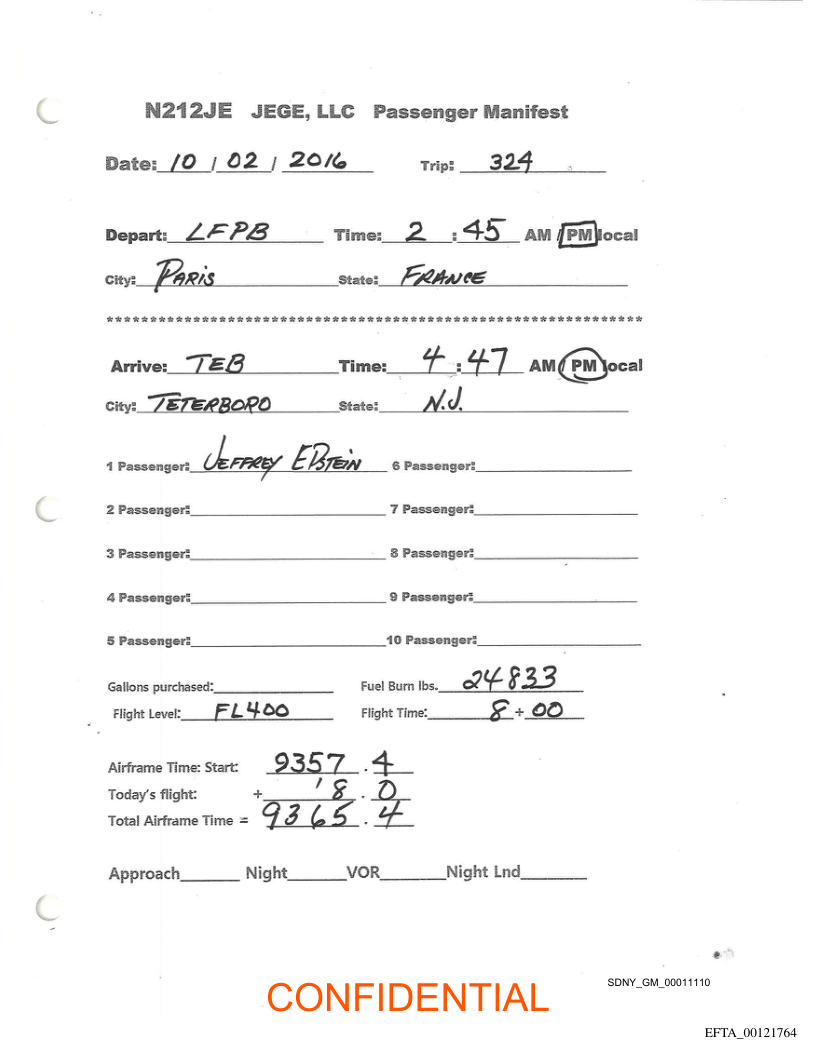 N212JE JEGE, LLC Passenger Manifest
Date: 10 / 02 / 2016 Trip: 324
Depart: LFPB Time: 2 : 45 AM / PM local
City: PARIS State: FRANCE
************************************************************
Arrive: TEB Time: 4 : 47 AM / PM local
City: TETERBORO State: N.J.
1 Passenger: JEFFREY EPSTEIN 6 Passenger:
2 Passenger: 7 Passenger:
3 Passenger: 8 Passenger:
4 Passenger: 9 Passenger:
5 Passenger: 10 Passenger:
Gallons purchased: Fuel Burn lbs. 24833
Flight Level: FL400 Flight Time: 8 + 00
Airframe Time: Start: 9357 . 4
Today's flight: + ' 8 . 0
Total Airframe Time = 9365 . 4
Approach Night VOR Night Lnd
CONFIDENTIAL
SDNY_GM_00011110
EFTA_00121764